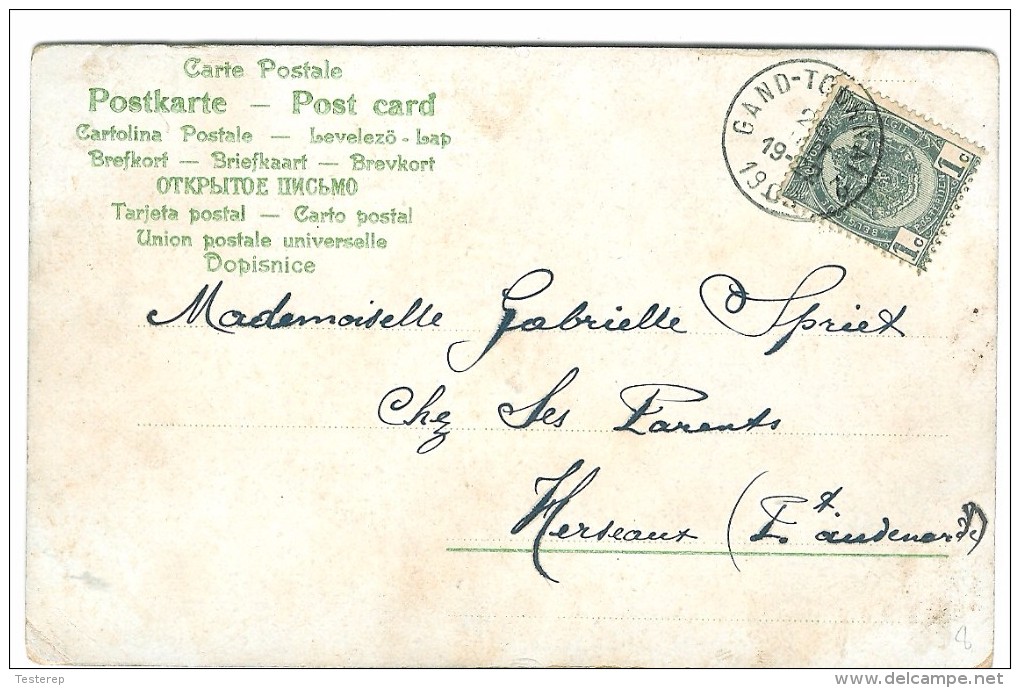 Carte Postale
Postkarte — Post card
Cartolina Postale — Levelező-Lap
Brefkort — Briefkaart — Brevkort
ОТКРЫТОЕ ПИСЬМО
Tarjeta postal — Carto postal
Union postale universelle
Dopisnice
GAND-TOURNAI 2
19-
190
1c
1c
Mademoiselle Gabrielle Spriet
Chez Ses Parents
Herseaux (Pt. audenarde)
8
Testerep
delcampe.net